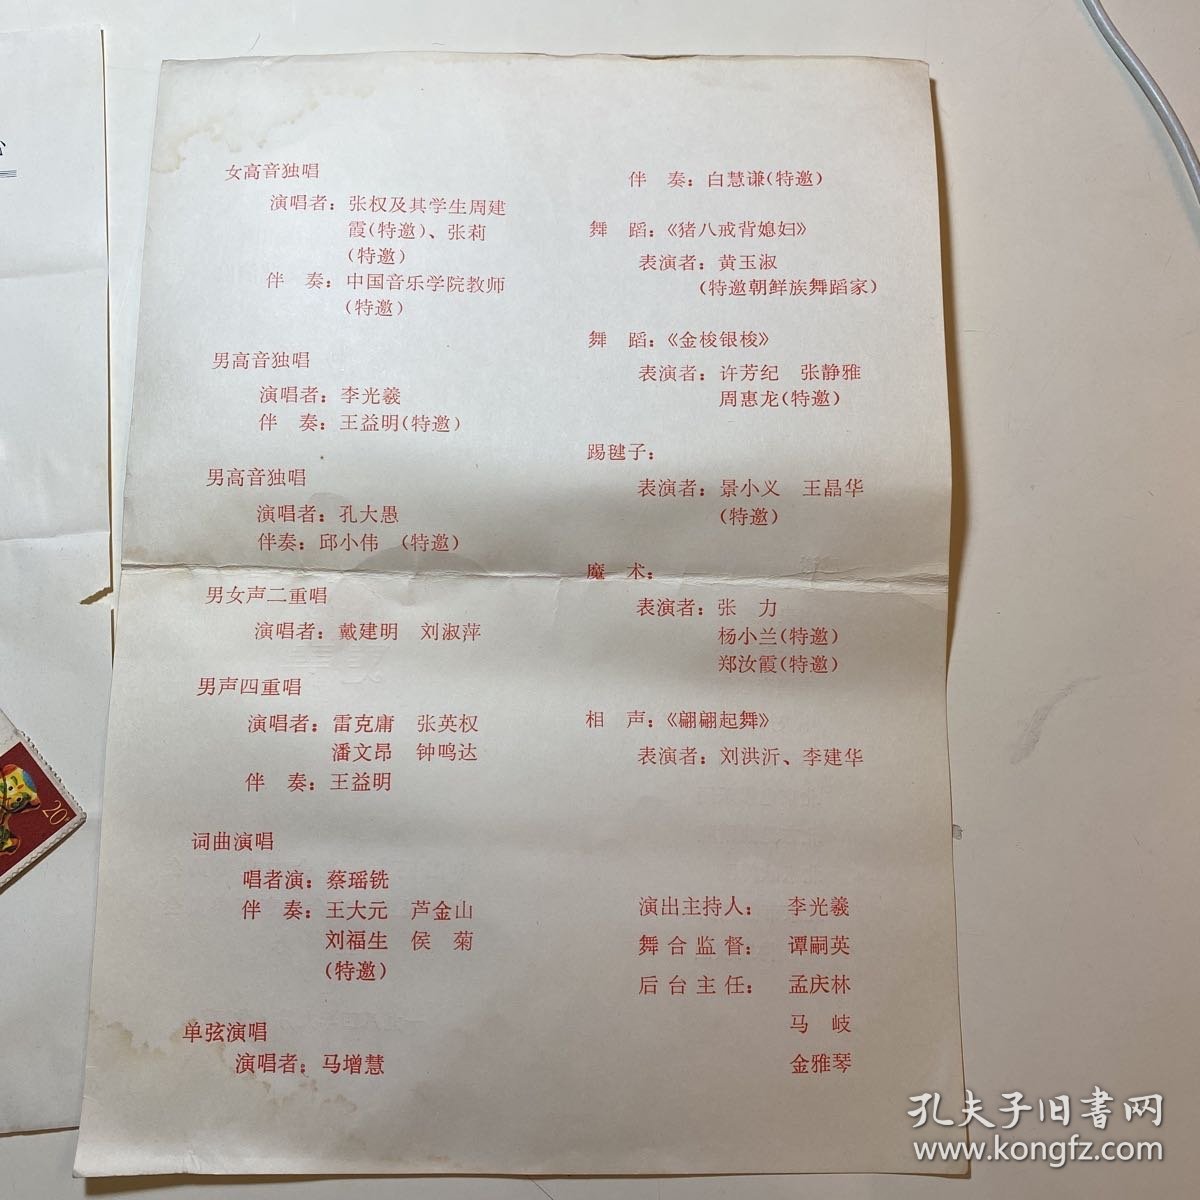 女高音独唱
演唱者：张权及其学生周建
霞(特邀)、张莉
(特邀)
伴　奏：中国音乐学院教师
(特邀)
男高音独唱
演唱者：李光羲
伴　奏：王益明(特邀)
男高音独唱
演唱者：孔大愚
伴奏：邱小伟　(特邀)
男女声二重唱
演唱者：戴建明　刘淑萍
男声四重唱
演唱者：雷克庸　张英权
潘文昂　钟鸣达
伴　奏：王益明
词曲演唱
唱者演：蔡瑶铣
伴　奏：王大元　芦金山
刘福生　侯　菊
(特邀)
单弦演唱
演唱者：马增慧
伴　奏：白慧谦(特邀)
舞　蹈：《猪八戒背媳妇》
表演者：黄玉淑
(特邀朝鲜族舞蹈家)
舞　蹈：《金梭银梭》
表演者：许芳纪　张静雅
周惠龙(特邀)
踢毽子：
表演者：景小义　王晶华
(特邀)
魔　术：
表演者：张　力
杨小兰(特邀)
郑汝霞(特邀)
相　声：《翩翩起舞》
表演者：刘洪沂、李建华
演出主持人：　李光羲
舞合监督：　谭嗣英
后台主任：　孟庆林
马　岐
金雅琴
20
孔夫子旧书网
www.kongfz.com